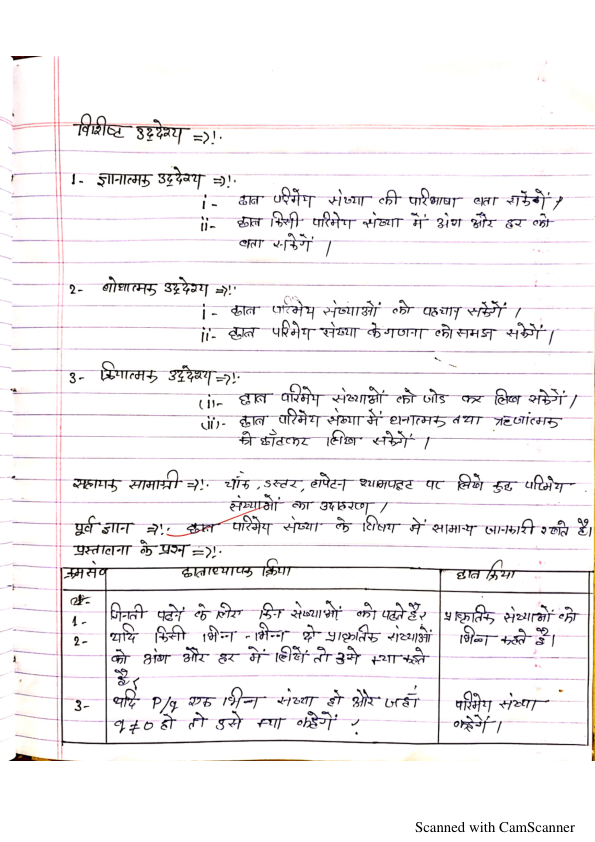 विशिष्ट उद्देश्य =>!·
1- ज्ञानात्मक उद्देश्य =>!·
i- छात्र परिमेय संख्या की परिभाषा बता सकेगें।
ii- छात्र किसी परिमेय संख्या में अंश और हर को
बता सकेगें ।
2- बोधात्मक उद्देश्य =>!·
i- छात्र परिमेय संख्याओं को पहचान सकेगें ।
ii- छात्र परिमेय संख्या के गणना को समझ सकेगें ।
3- क्रियात्मक उद्देश्य =>!·
(i)- छात्र परिमेय संख्याओं को जोड कर लिख सकेगें ।
(ii)- छात्र परिमेय संख्या में धनात्मक तथा ऋणांत्मक
को छाँटकर लिख सकेगें ।
सहायक सामाग्री =>!· चॉक, डस्टर, लपेटन श्यामपट्ट पर लिखे कुछ परिमेय
संख्याओं का उदाहरण ।
पूर्व ज्ञान =>!· छात्र परिमेय संख्या के विषय में सामान्य जानकारी रखते है।
प्रस्तावना के प्रश्न =>!·
क्रमसं० छात्राध्यापक क्रिया छात्र क्रिया
1- गिनती पढ़ने के लिए किन संख्याओं को पढ़ते है? प्राकृतिक संख्याओं को
2- यदि किसी भिन्न-भिन्न दो प्राकृतिक संख्याओं भिन्न कहते है।
को अंश और हर में लिखें तो उसे क्या कहते
है?
3- यदि P/q एक भिन्न संख्या हो और जहाँ परिमेय संख्या
q≠0 हो तो उसे क्या कहेगें ? कहेगें ।
Scanned with CamScanner